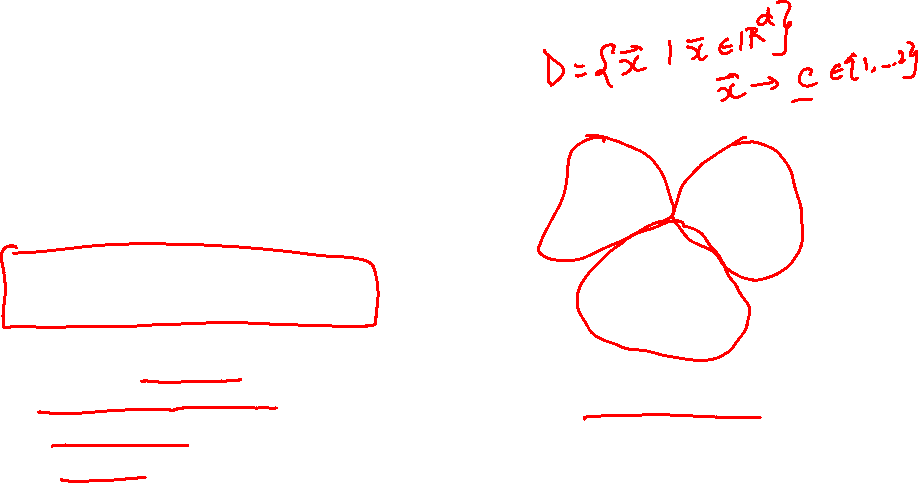 D = {x⃗ | x̄ ∈ ℝᵈ}
x̄ → C ∈ {1,..2}